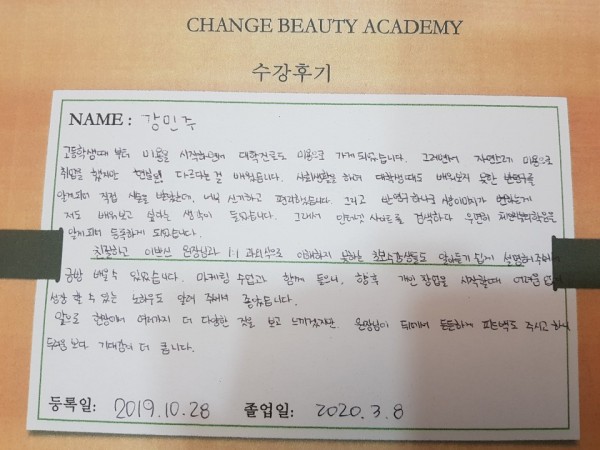 CHANGE BEAUTY ACADEMY
수강후기
NAME : 강민주
고등학생때 부터 미용을 시작하면서 대학진로도 미용으로 가게 되었습니다. 그러면서 자연스레 미용으로
취업을 했지만 현실은 다르다는걸 배웠습니다. 사회생활을 하며 대학생때도 배워보지 못한 반영구를
알게되어 직접 시술을 받았는데, 너무 신기하고 편리하였습니다. 그리고 반영구하나로 이미지가 변하는게
저도 배워보고 싶다는 생각이 들었습니다. 그래서 인터넷 사이트를 검색하다 우연히 체인지뷰티학원을
알게되어 등록하게 되었습니다.
친절하고 이쁘신 원장님과 1:1 과외식으로 이해하지 못하는 초보수강생들도 알아듣기 쉽게 설명해주셔서
금방 배울수 있었습니다. 마케팅 수업도 함께 들으니, 향후 개인 창업을 시작할때 어려움 없이
성장 할 수 있는 노하우도 알려 주셔서 좋았습니다.
앞으로 현장에서 여러가지 더 다양한 것을 보고 느끼겠지만. 원장님이 뒤에서 든든하게 피드백도 주시고 하니
두려움 보다 기대감이 더 큽니다.
등록일: 2019.10.28 졸업일: 2020.3.8